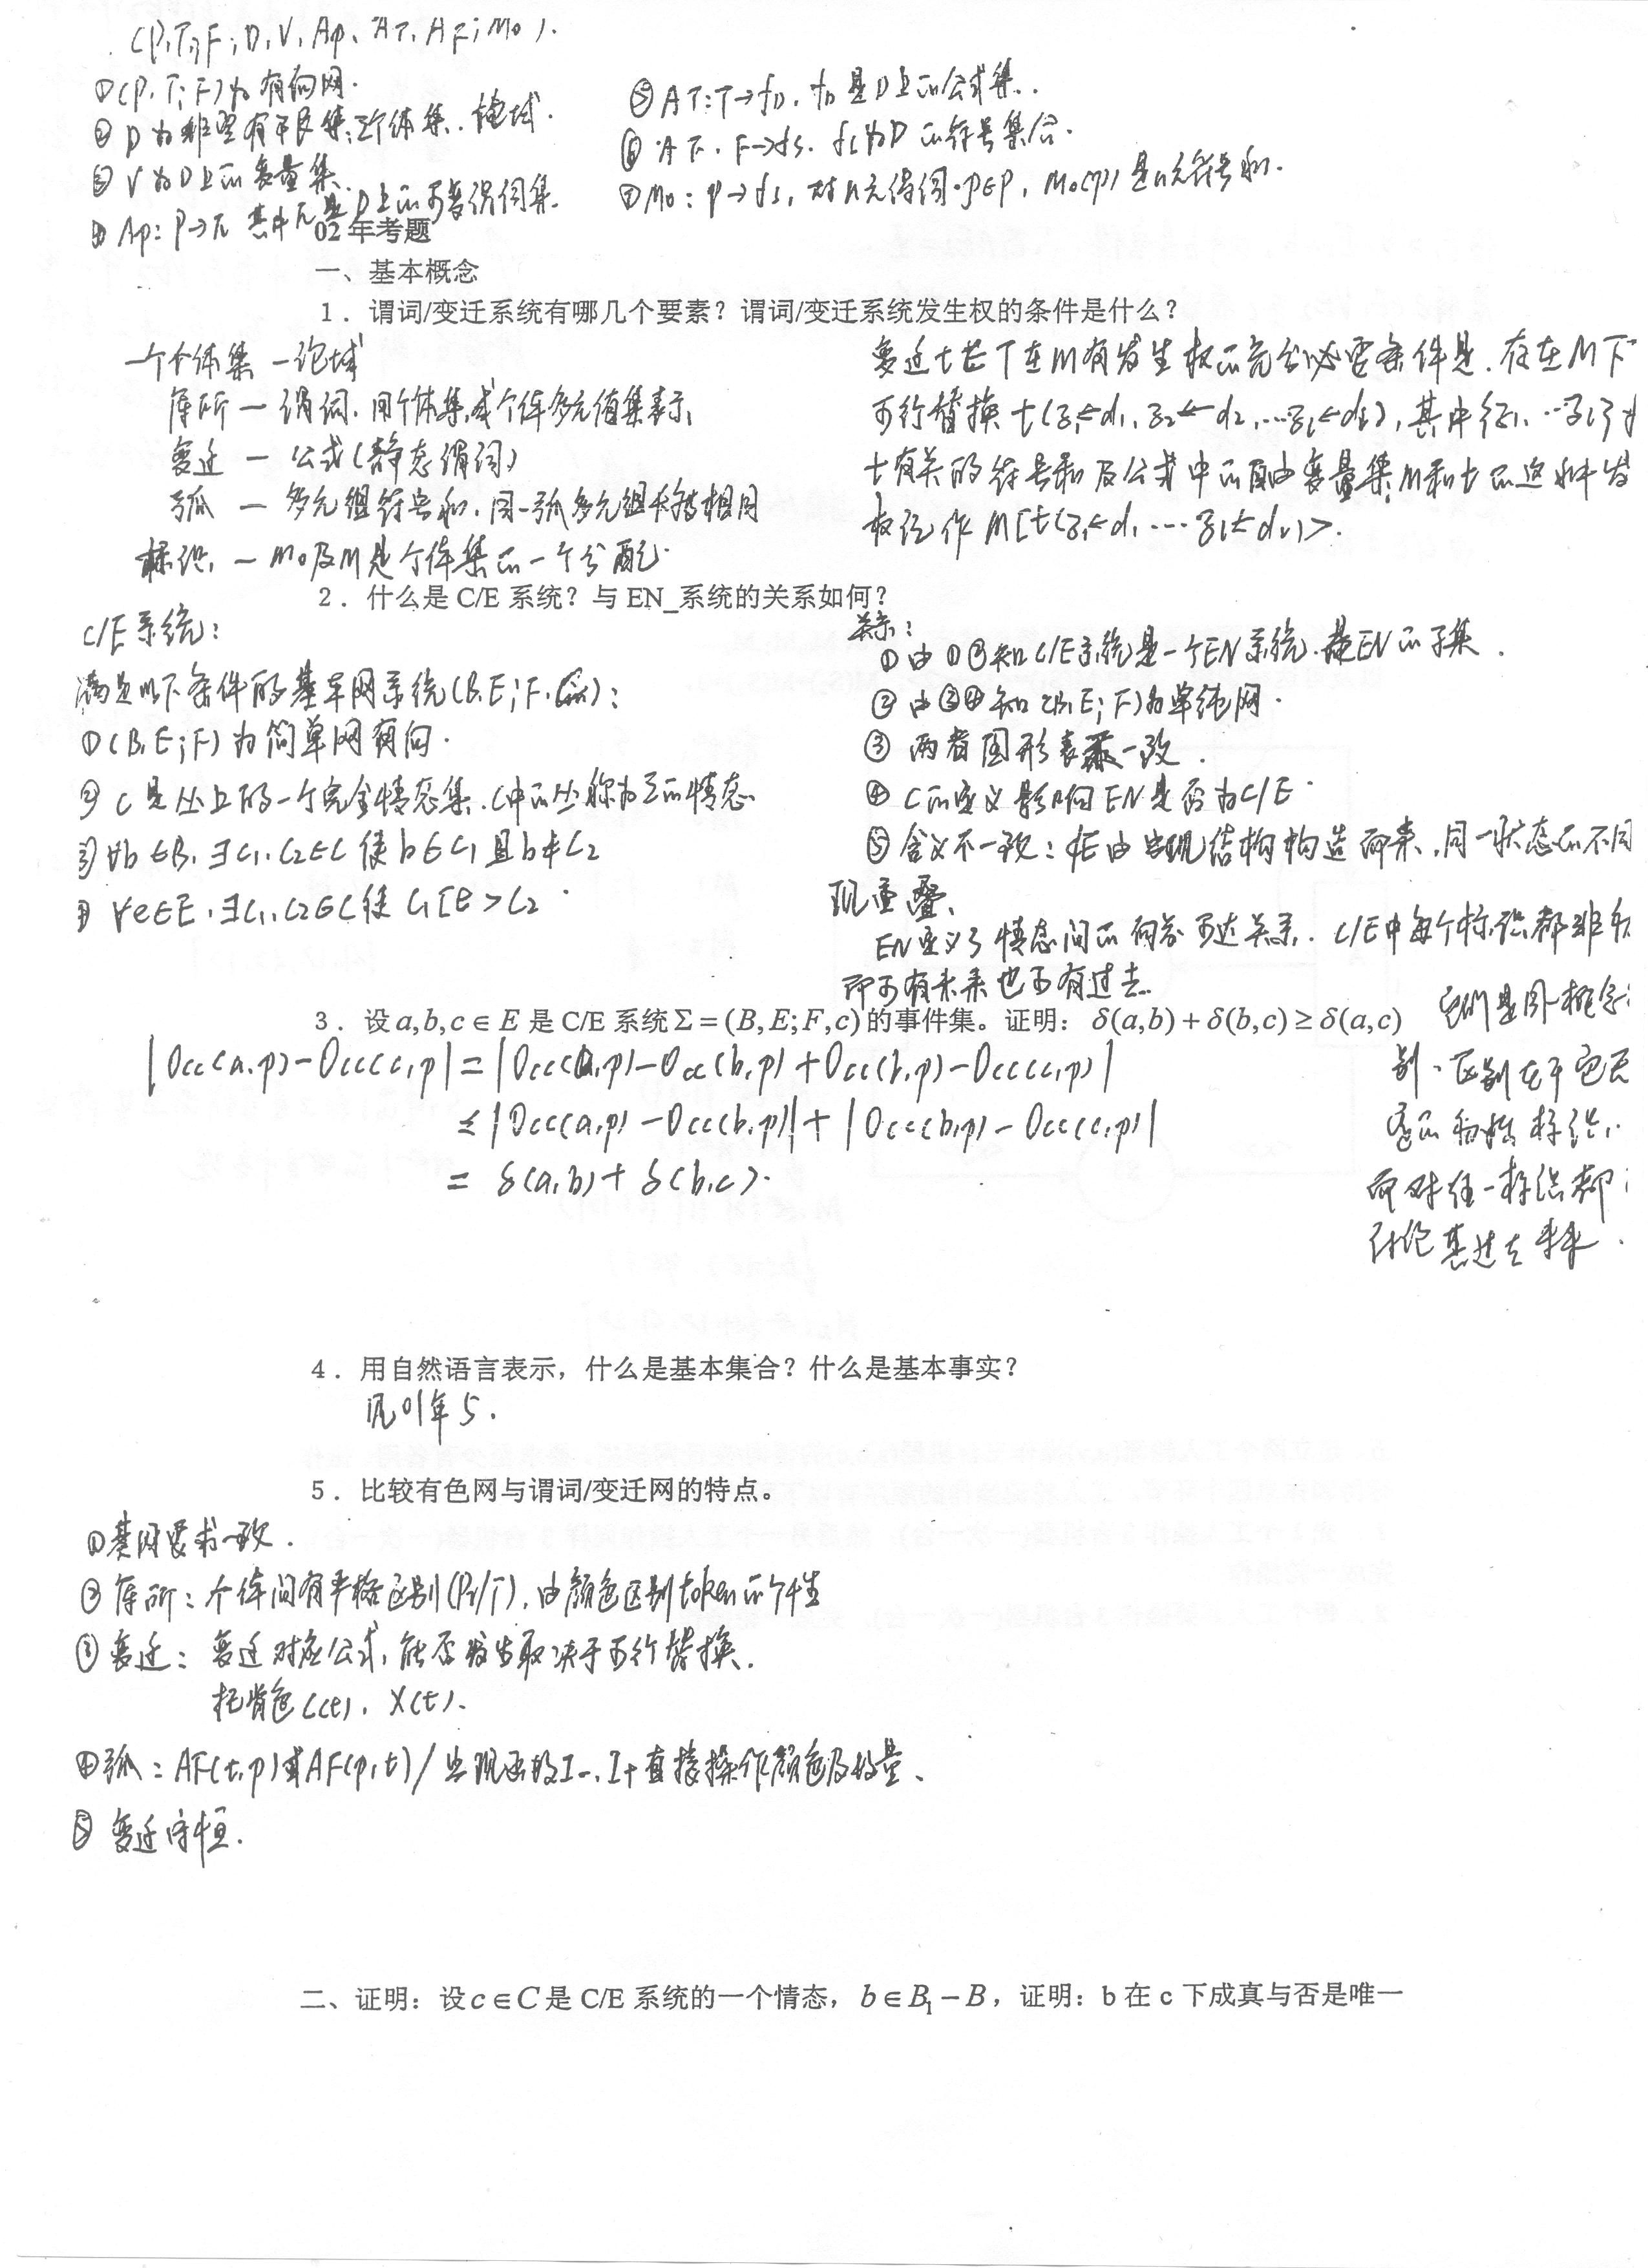 (P,T;F;D,V,Ap,AT,AF;M0).
①(P,T;F)为有向网.
② D为非空有限集:个体集.论域.
③ V为D上的变量集.
④ Ap: P→π 其中π是D上的可变谓词集.
⑤ AT:T→fD, fD是D上的公式集.
⑥ AF. F→fs. fs为D的符号集合.
⑦ M0: P→fs, 对n元谓词p∈P, M0(p)是n元符号和.
02年考题
一、基本概念
1．谓词/变迁系统有哪几个要素？谓词/变迁系统发生权的条件是什么？
一个个体集 — 论域
库所 — 谓词.用个体集或个体多元值集表示.
变迁 — 公式(静态谓词)
弧 — 多元组符号和.同一弧多元组 相同
标识 — M0及M是个体集的一个分配.
变迁t∈T在M有发生权的充分必要条件是.存在M下
可行替换 t(ξ1←d1, ξ2←d2, …ξl←dl), 其中{ξ1, …ξl}为
t有关的符号和及公式中的自由变量集.M和t的这种发
权记作 M[t(ξ1←d1 … ξl←dl)>.
2．什么是 C/E 系统？与 EN_系统的关系如何？
C/E系统:
满足以下条件的基本网系统(B,E;F, ):
①(B,E;F) 为简单网有向.
② C是 上的一个完全情态集.C中的 称为Σ的情态.
③ ∀b∈B, ∃c1,c2∈C 使 b∈c1 且 b∉c2
④ ∀e∈E, ∃c1,c2∈C使 c1[e>c2
关系:
① 由①②知C/E系统是一个EN系统.是EN的子集.
② 由③④知 (B,E;F)为单纯网.
③ 两者图形表示一致.
④ C的定义影响EN是否为C/E.
⑤ 含义不一致: 由出现结构构造而来.同一状态的不同
现重叠.
EN定义了情态间的向前可达关系. C/E中每个标识都非初
即可有未来也可有过去.
3．设 a,b,c ∈ E 是 C/E 系统 Σ = (B,E;F,c) 的事件集。证明： δ(a,b) + δ(b,c) ≥ δ(a,c)
|Occ(a,p)-Occ(c,p)| = |Occ(a,p)-Occ(b,p)+Occ(b,p)-Occ(c,p)|
≤ |Occ(a,p)-Occ(b,p)| + |Occ(b,p)-Occ(c,p)|
= δ(a,b)+δ(b,c).
它们是同一概念
别.区别在于它无
的初始标识,
而对任一标识都
讨论其过去未来.
4．用自然语言表示，什么是基本集合？什么是基本事实？
见01年5.
5．比较有色网与谓词/变迁网的特点。
①基网要求一致.
② 库所: 个体间有严格区别(Pr/T), 由颜色区别token的个性
③ 变迁: 变迁对应公式, 能否发生取决于可行替换.
托肯色C(t), X(t).
④弧: AF(t,p)或AF(p,t)/出现函数I-, I+直接操作颜色及数量.
⑤ 变迁守恒.
二、证明：设 c ∈ C 是 C/E 系统的一个情态， b ∈ B₁ − B，证明：b 在 c 下成真与否是唯一